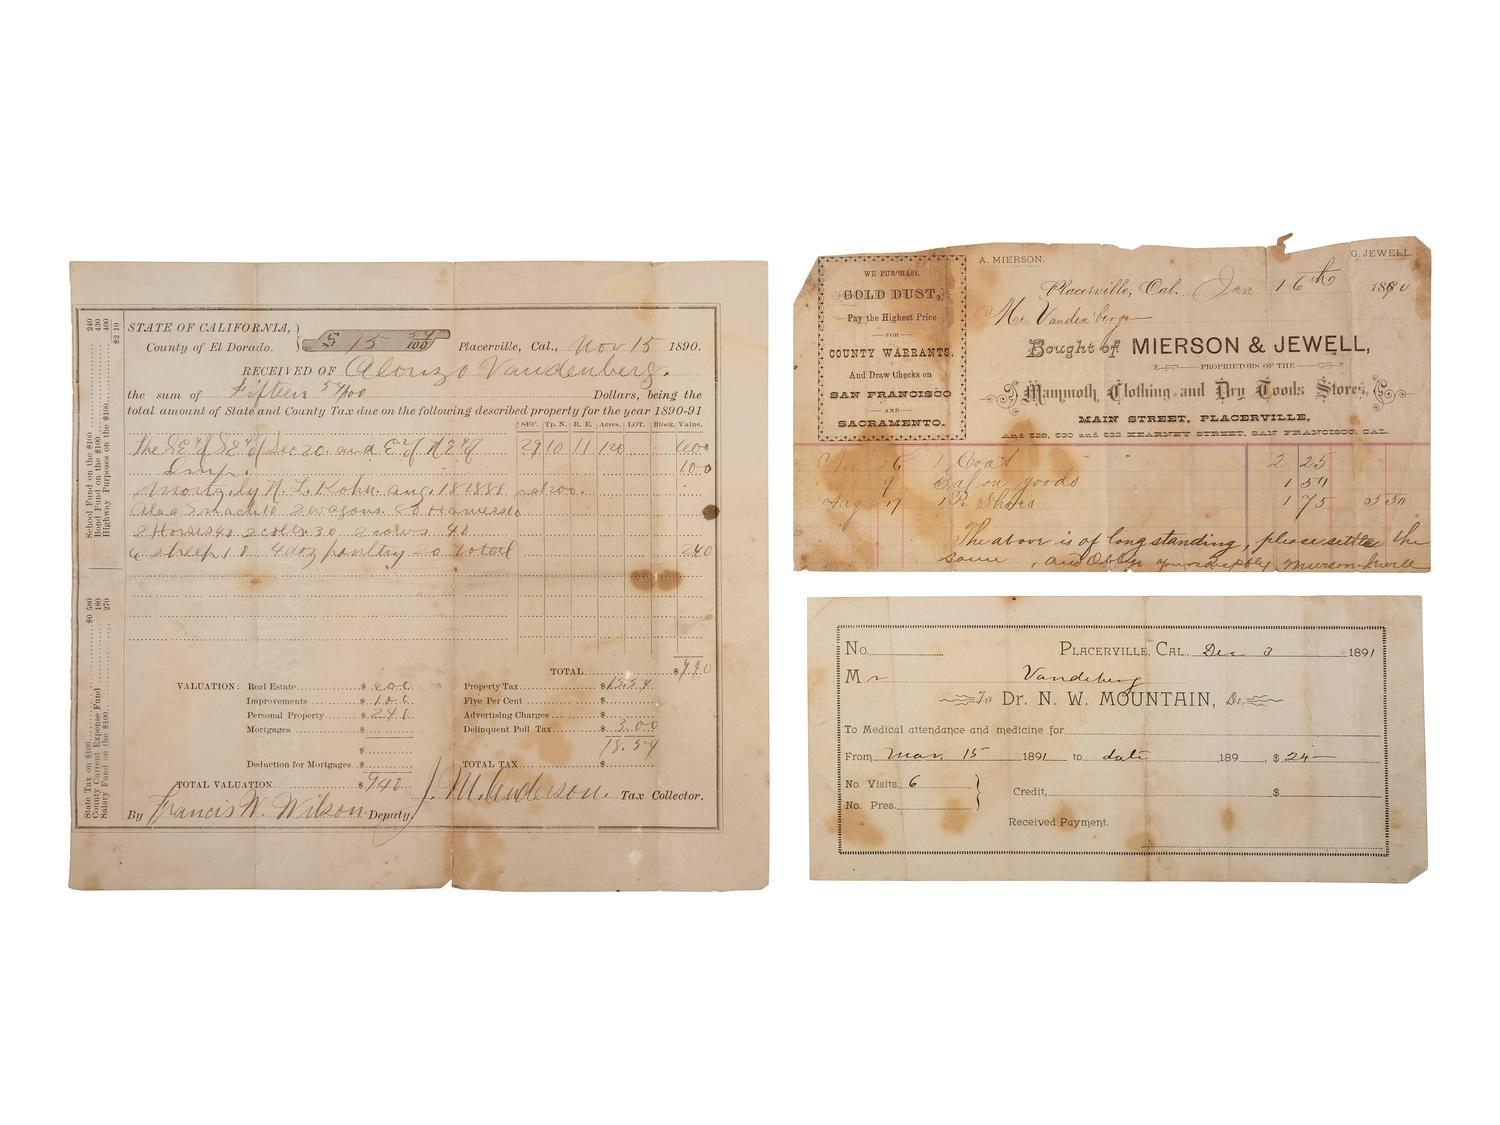 STATE OF CALIFORNIA,
County of El Dorado.
$ 15 54/100
Placerville, Cal., Nov 15 1890.
RECEIVED OF Alonzo Vandenberg.
the sum of Fifteen 54/100 Dollars, being the
total amount of State and County Tax due on the following described property for the year 1890-91
SEC. Tp. N. R. E. Acres. LOT. Block. Value.
The S.E.¼ of S.E.¼ of Sec 20. and E. of N.E.¼ of 29 10 11 120 600
Imp. 100
Mortg. by N. L. Kohn. Aug. 18 1888
2 wagons. 80 Harness 10
2 Horses 40 2 colts 30 2 cows 40
6 sheep 10 4 doz poultry 20 total 240
TOTAL $940
VALUATION: Real Estate $ 600
Improvements $ 100
Personal Property $ 240
Mortgages $
$
Deduction for Mortgages $
TOTAL VALUATION $940
Property Tax $15.54
Five Per Cent $
Advertising Charges $
Delinquent Poll Tax $ 3.00
18.54
TOTAL TAX $
J. M. Anderson. Tax Collector.
By Francis W. Wilson Deputy
School Fund on the $100 240
Bond Fund on the $100 430
Highway Purposes on the $100 400
$2 10
State Tax on $100 $0 580
County Current Expense Fund 180
Salary Fund on the $100 270
WE PURCHASE
GOLD DUST,
Pay the Highest Price
FOR
COUNTY WARRANTS,
And Draw Checks on
SAN FRANCISCO
AND
SACRAMENTO.
A. MIERSON. G. JEWELL.
Placerville, Cal. Jan 16th 1890
Mr. Vandenberg
Bought of MIERSON & JEWELL,
PROPRIETORS OF THE
Mammoth Clothing and Dry Goods Stores,
MAIN STREET, PLACERVILLE,
And 528, 530 and 532 KEARNEY STREET, SAN FRANCISCO, CAL.
6 1 Coat 2 25
9 Bal on goods 1 50
Aug 17 1 Pr Shoes 1 75 5 50
The above is of long standing, please settle the
same, and Oblige yours Mierson & Jewell
No.
PLACERVILLE, CAL., Dec 3 1891
Mr Vandeberg
To Dr. N. W. MOUNTAIN, Dr.
To Medical attendance and medicine for
From Mar, 15 1891 to date 189 $ 24—
No. Visits 6
No. Pres.
Credit, $
Received Payment.